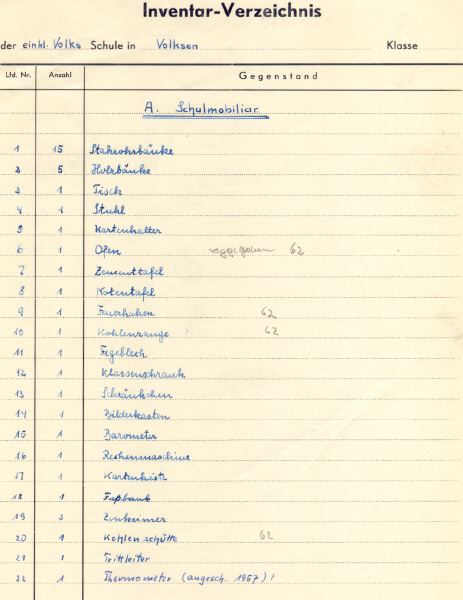 Inventar-Verzeichnis
der einkl. Volks Schule in Volksen Klasse
Lfd. Nr. Anzahl Gegenstand
A. Schulmobiliar
1 15 Stahlrohrbänke
2 5 Holzbänke
3 1 Tisch
4 1 Stuhl
5 1 Kartenhalter
6 1 Ofen weggegeben 62
7 1 Zementtafel
8 1 Notentafel
9 1 Feuerhaken 62
10 1 Kohlenzange 62
11 1 Fegeblech
12 1 Klassenschrank
13 1 Schränkchen
14 1 Bilderkasten
15 1 Barometer
16 1 Rechenmaschine
17 1 Kartenkiste
18 1 Fußbank
19 3 Zinkeimer
20 1 Kohlenschütte 62
21 1 Trittleiter
22 1 Thermometer (angesch. 1957)!